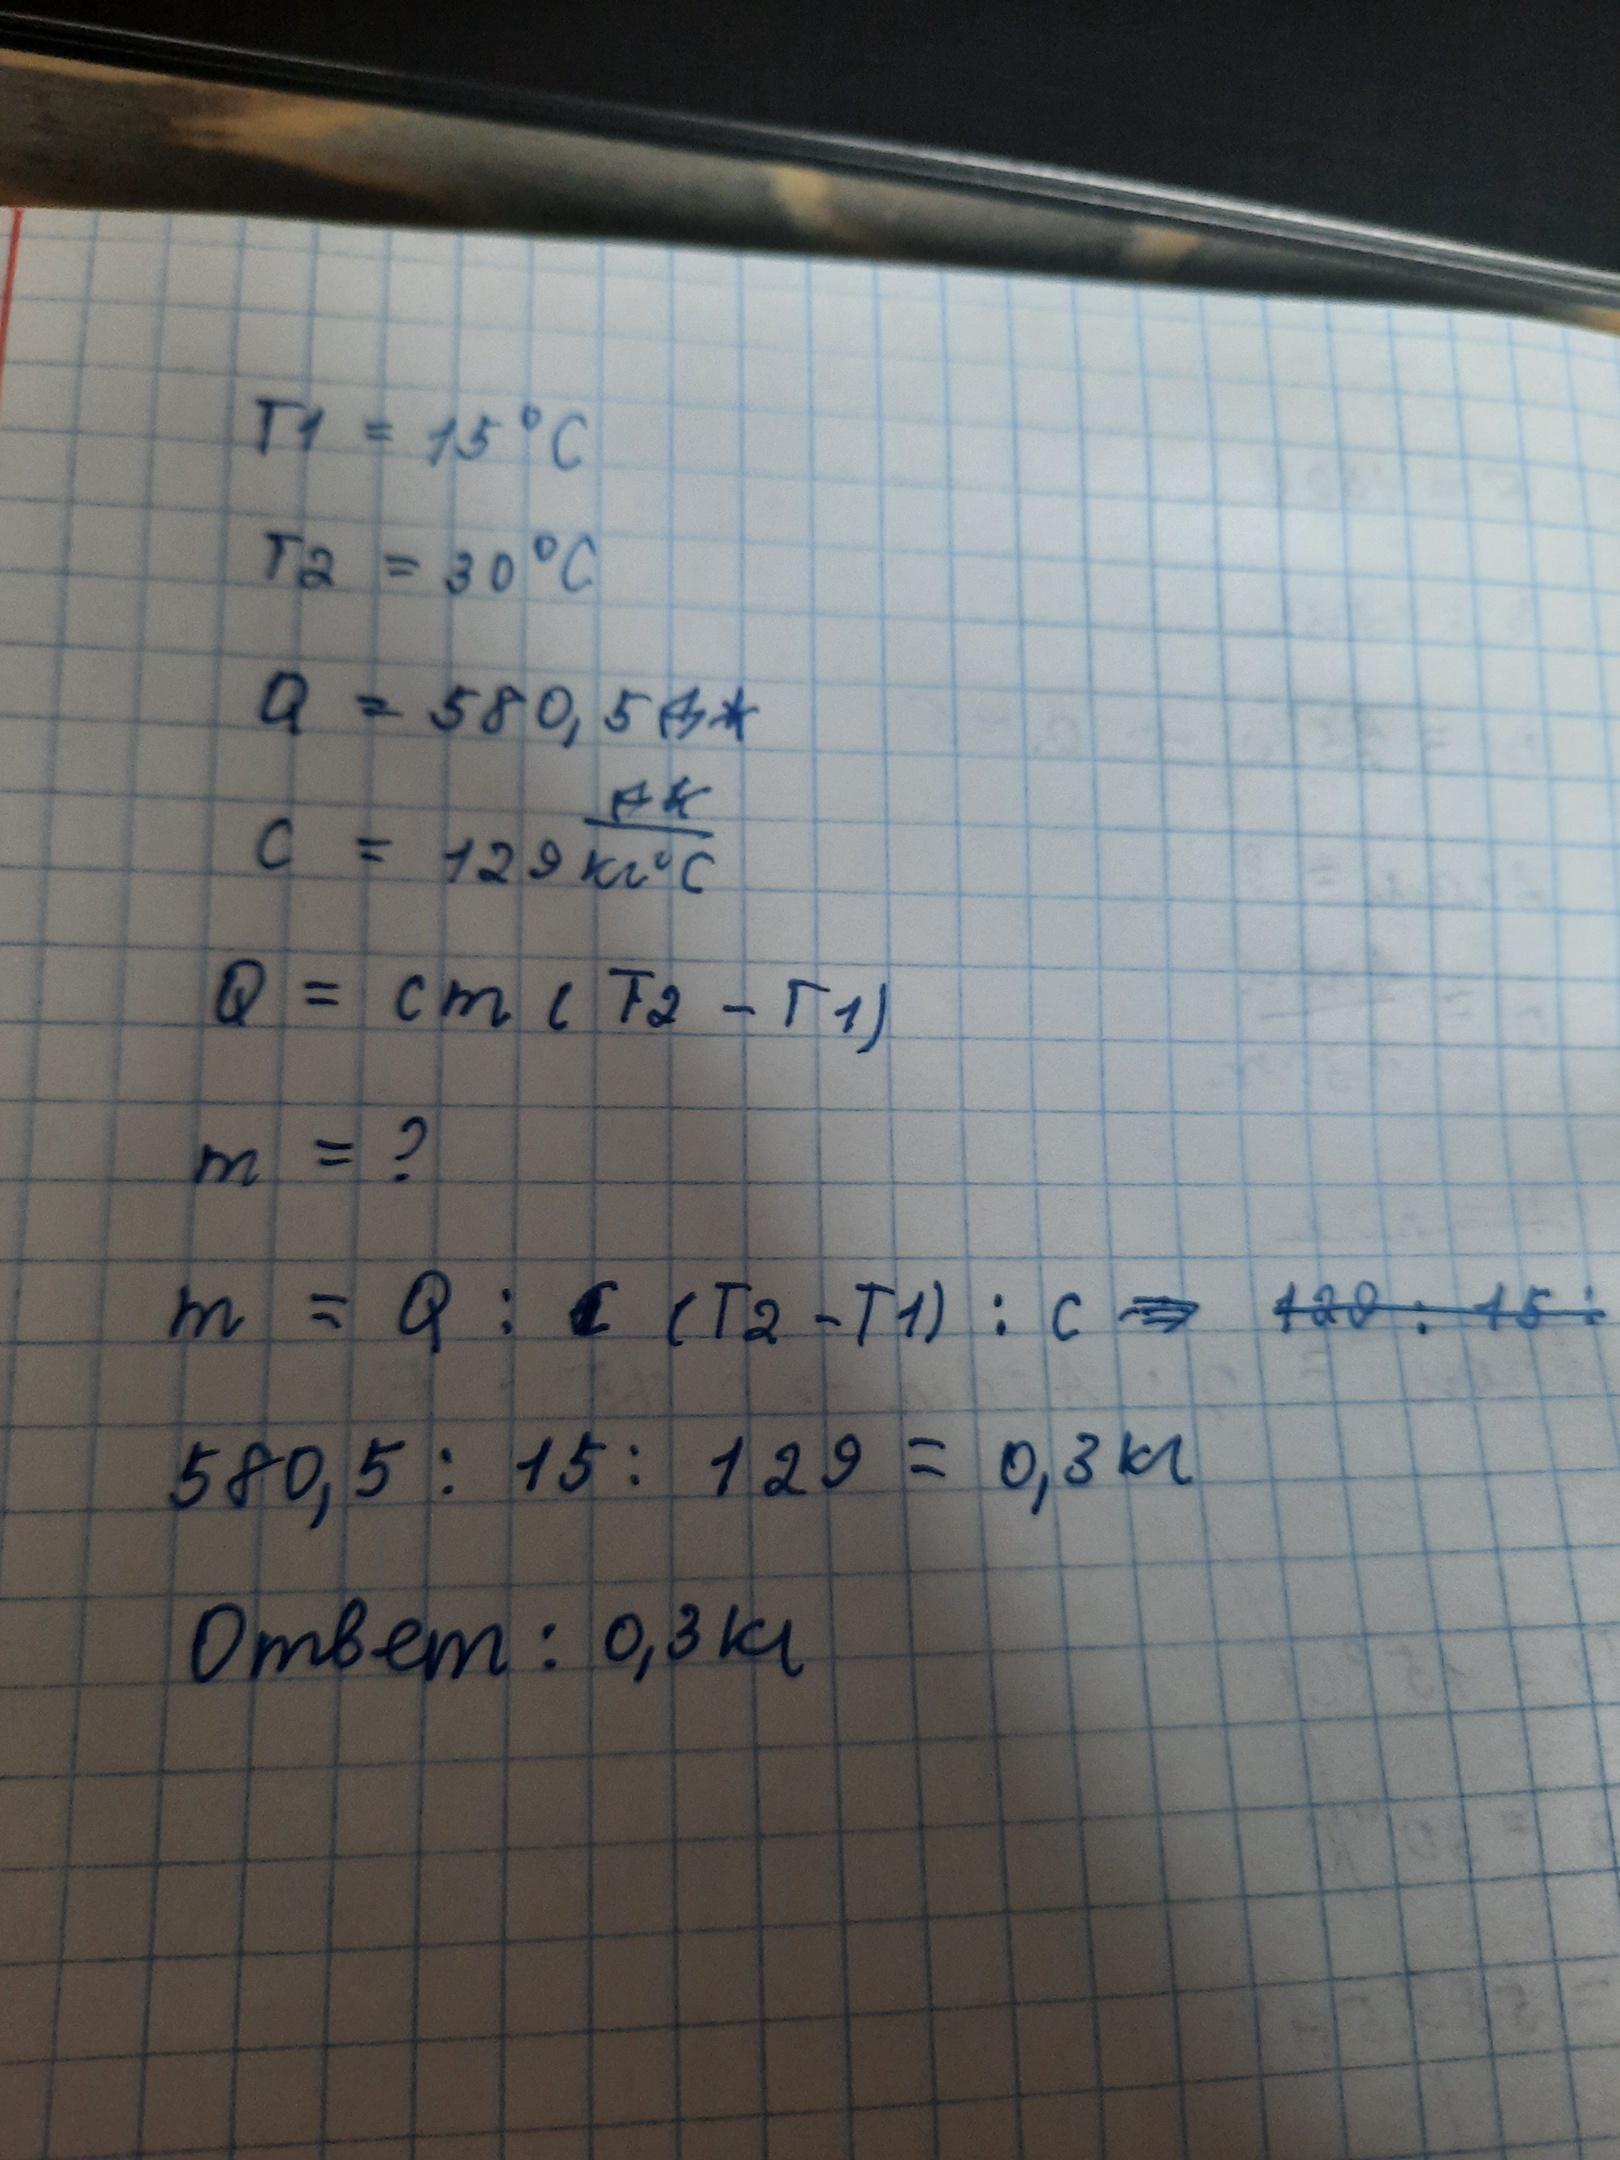 T1 = 15°C
T2 = 30°C
Q = 580,5 Дж
C = 129 Дж
кг°C
Q = cm (T2 - T1)
m = ?
m = Q : (T2 - T1) : c ⇒ 129 : 15 :
580,5 : 15 : 129 = 0,3 кг
Ответ : 0,3 кг